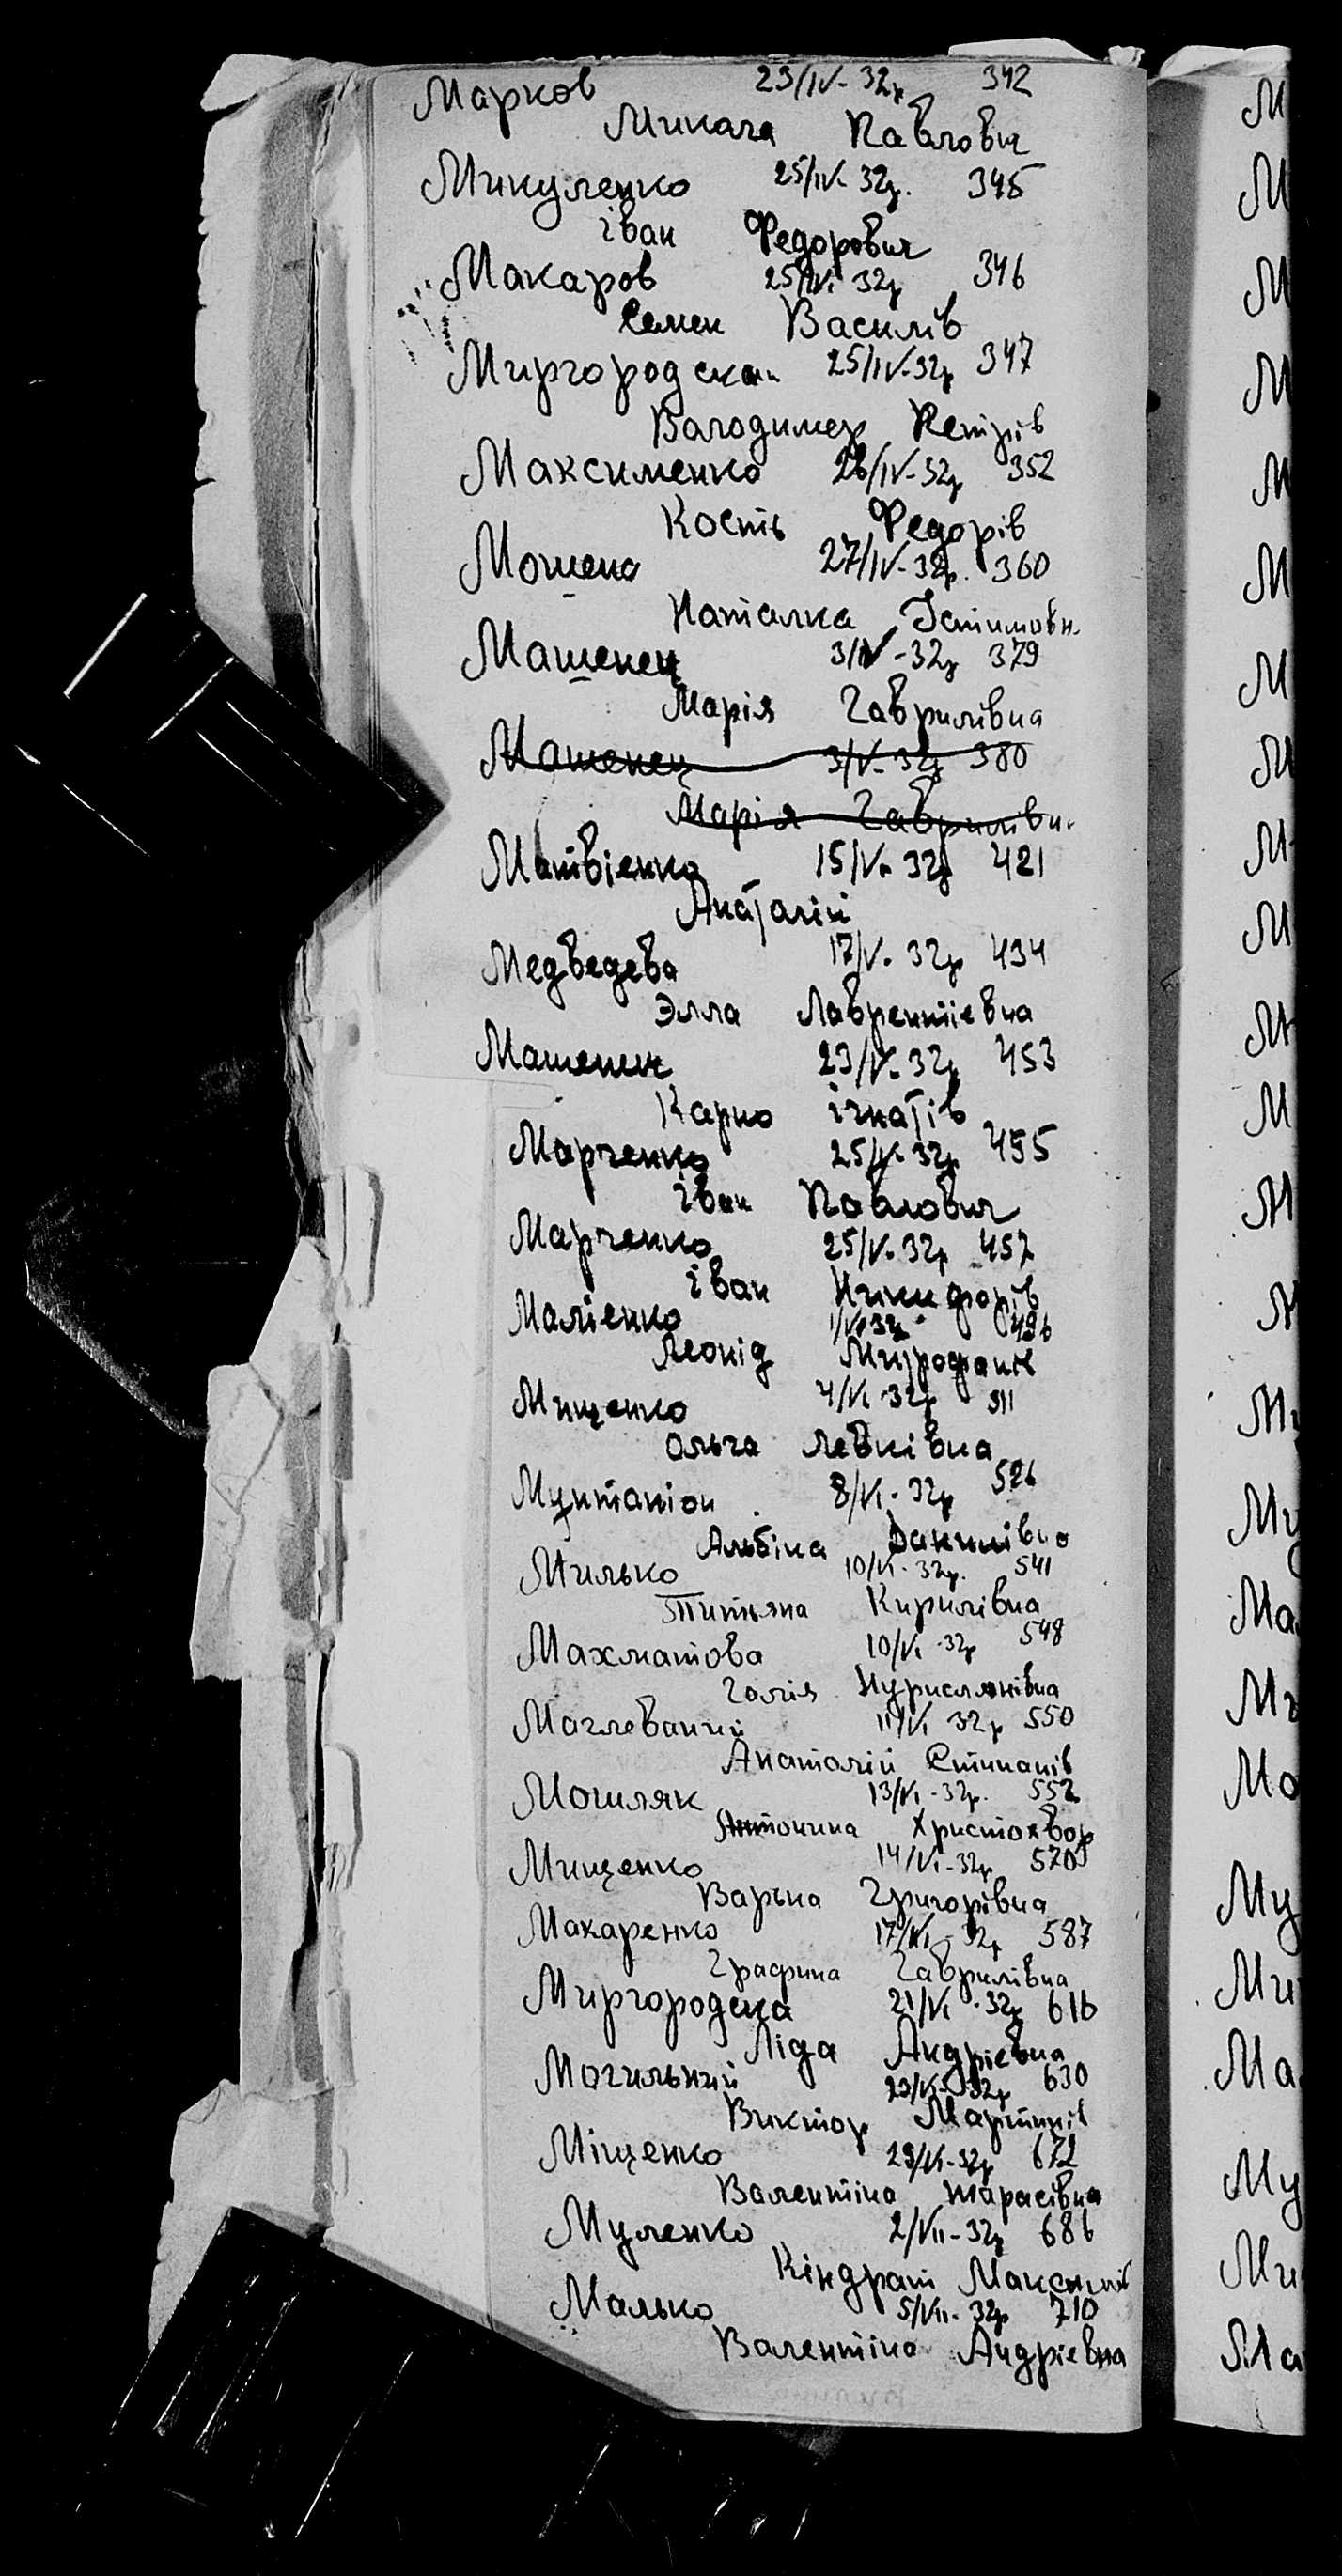 Марков 23/IV-32р 342
Микола Павлович
Микуленко 25/IV-32р. 345
іван Федорович
Макаров 25/IV-32р 346
Семен Василів
Миргородский 25/IV-32р 347
Володимер Петрів
Максименко 26/IV-32р 352
Кость Федорів
Мошена 27/IV-32р. 360
Наталка
Машенец 3/V-32р 379
Марія Гаврилівна
Машенец 3/V-32р 380
Марія Гаврилівн.
Матвієнко 15/V-32р 421
Анаталій
Медведева 17/V-32р 434
Элла Лаврентіевна
23/V-32р 453
Карпо ігнатів
Марченко 25/V-32р 455
іван Павлович
Марченко 25/V-32р 457
іван
Малієнко 1/VI-32р 496
Леонід Митрофанів
Мищенко 4/VI-32р 511
Ольга Левківна
8/VI-32р 526
Альбіна Данилівна
Милько 10/VI-32р. 541
Титьяна Кирилівна
Махматова 10/VI-32р 548
Галія
Маглеваний 11/VI 32р 550
Анатолій Стипанів
Мошляк 13/VI-32р. 552
Антонина Христохвор
Мищенко 14/VI-32р 570
Варька Григорівна
Макаренко 17/VI-32р 587
Графина Гаврилівна
Миргородска 21/VI-32р 616
Ліда Андріевна
Могильний 23/VI-32р 630
Виктор Мартинів
Міщенко 29/VI-32р 672
Валентіна Тарасівна
Муленко 2/VII-32р 686
Кіндрат Максимів
Малько 5/VII-32р 710
Валентіна Андріевна